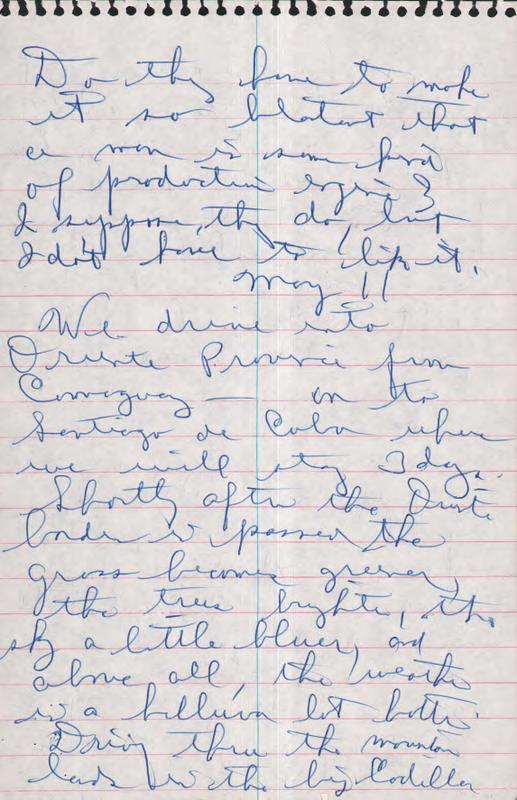 Do they have to make
it so blatant that
a man is some kind
of production engine?
I suppose they do, but
I don't have to like it.
May 11
We drive into
Oriente Province from
Camaguey — on to
Santiago de Cuba where
we will stay 3 days.
Shortly after the Oriente
border is passed the
grass becomes greener,
the trees brighter, the
sky a little bluer, and
above all, the weather
is a helluva lot hotter.
Driving thru the mountain
lands in the big Cadillac